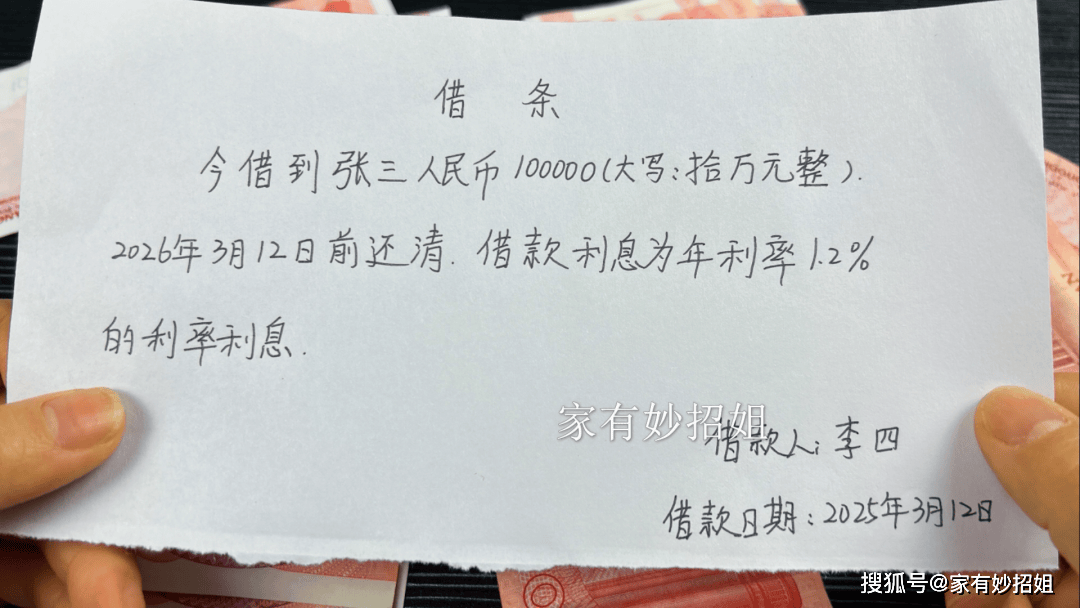 借 条
今借到张三人民币100000(大写:拾万元整).
2026年3月12日前还清.借款利息为年利率1.2%
的利率利息.
家有妙招姐
借款人:李四
借款日期:2025年3月12日
搜狐号@家有妙招姐